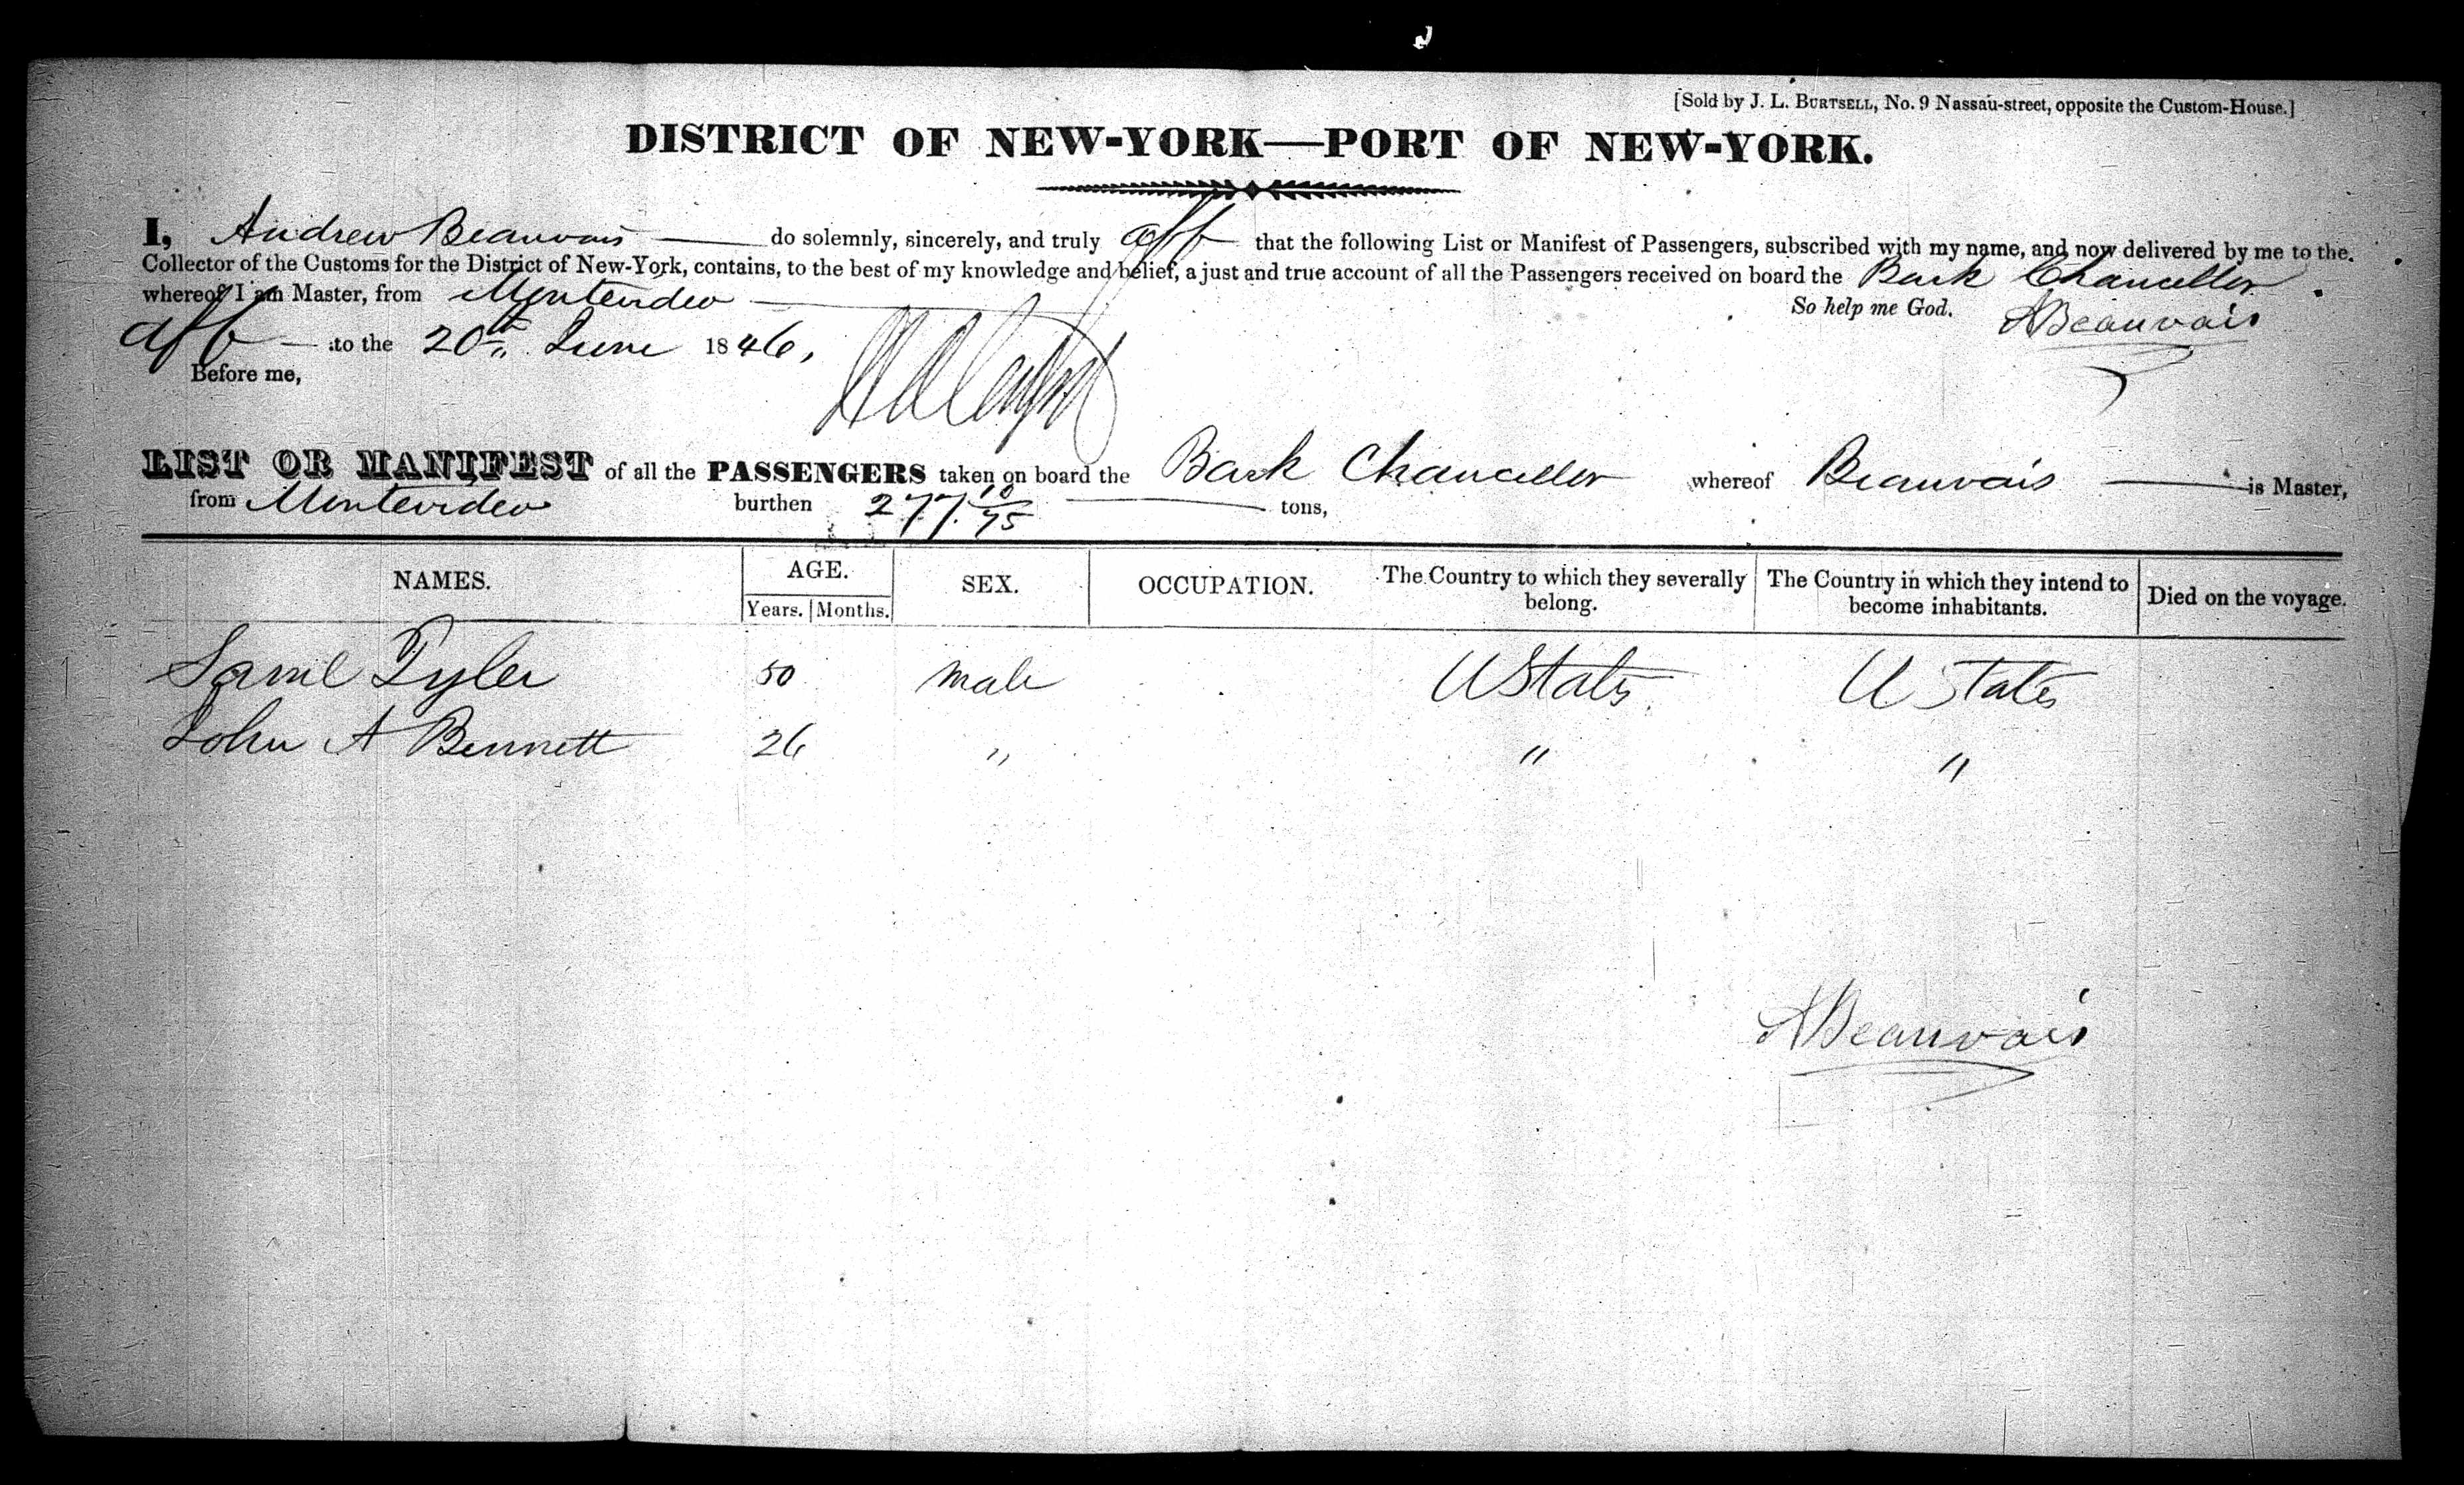 [Sold by J. L. BURTSELL, No. 9 Nassau-street, opposite the Custom-House.]
DISTRICT OF NEW-YORK—PORT OF NEW-YORK.
I, Andrew Beauvais do solemnly, sincerely, and truly aff that the following List or Manifest of Passengers, subscribed with my name, and now delivered by me to the
Collector of the Customs for the District of New-York, contains, to the best of my knowledge and belief, a just and true account of all the Passengers received on board the Bark Chancellor
whereof I am Master, from Montevideo
So help me God. ABeauvais
aff to the 20th June 1846,
Before me,
LIST OR MANIFEST of all the PASSENGERS taken on board the Bark Chancellor whereof Beauvais is Master,
from Montevideo burthen 277 10/95 tons,
NAMES. AGE. SEX. OCCUPATION. The Country to which they severally belong. The Country in which they intend to become inhabitants. Died on the voyage.
Years. Months.
Saml Tyler 50 male U States U States
John A Bennett 26 " " "
ABeauvais